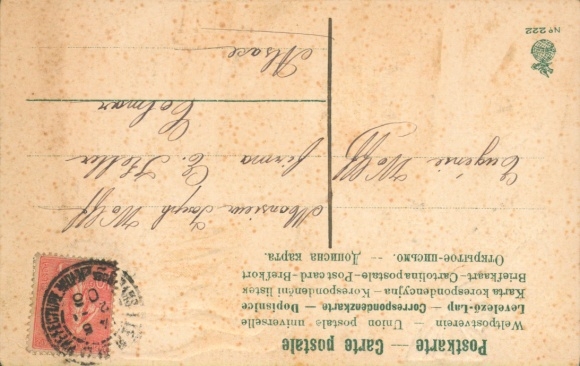 Postkarte — Carte postale
Weltpostverein — Union postale universelle
Levelező-Lap — Correspondenzkarte — Dopisnice
Karta korespondencyjna — Korespondenční lístek
Briefkaart — Cartolina postale — Post card — Brefkort
Открытое-письмо. -- Дописна карта.
Eugénie Wolff
Monsieur Joseph Wolff
firma E. Heller
Colmar
Alsace
No 222